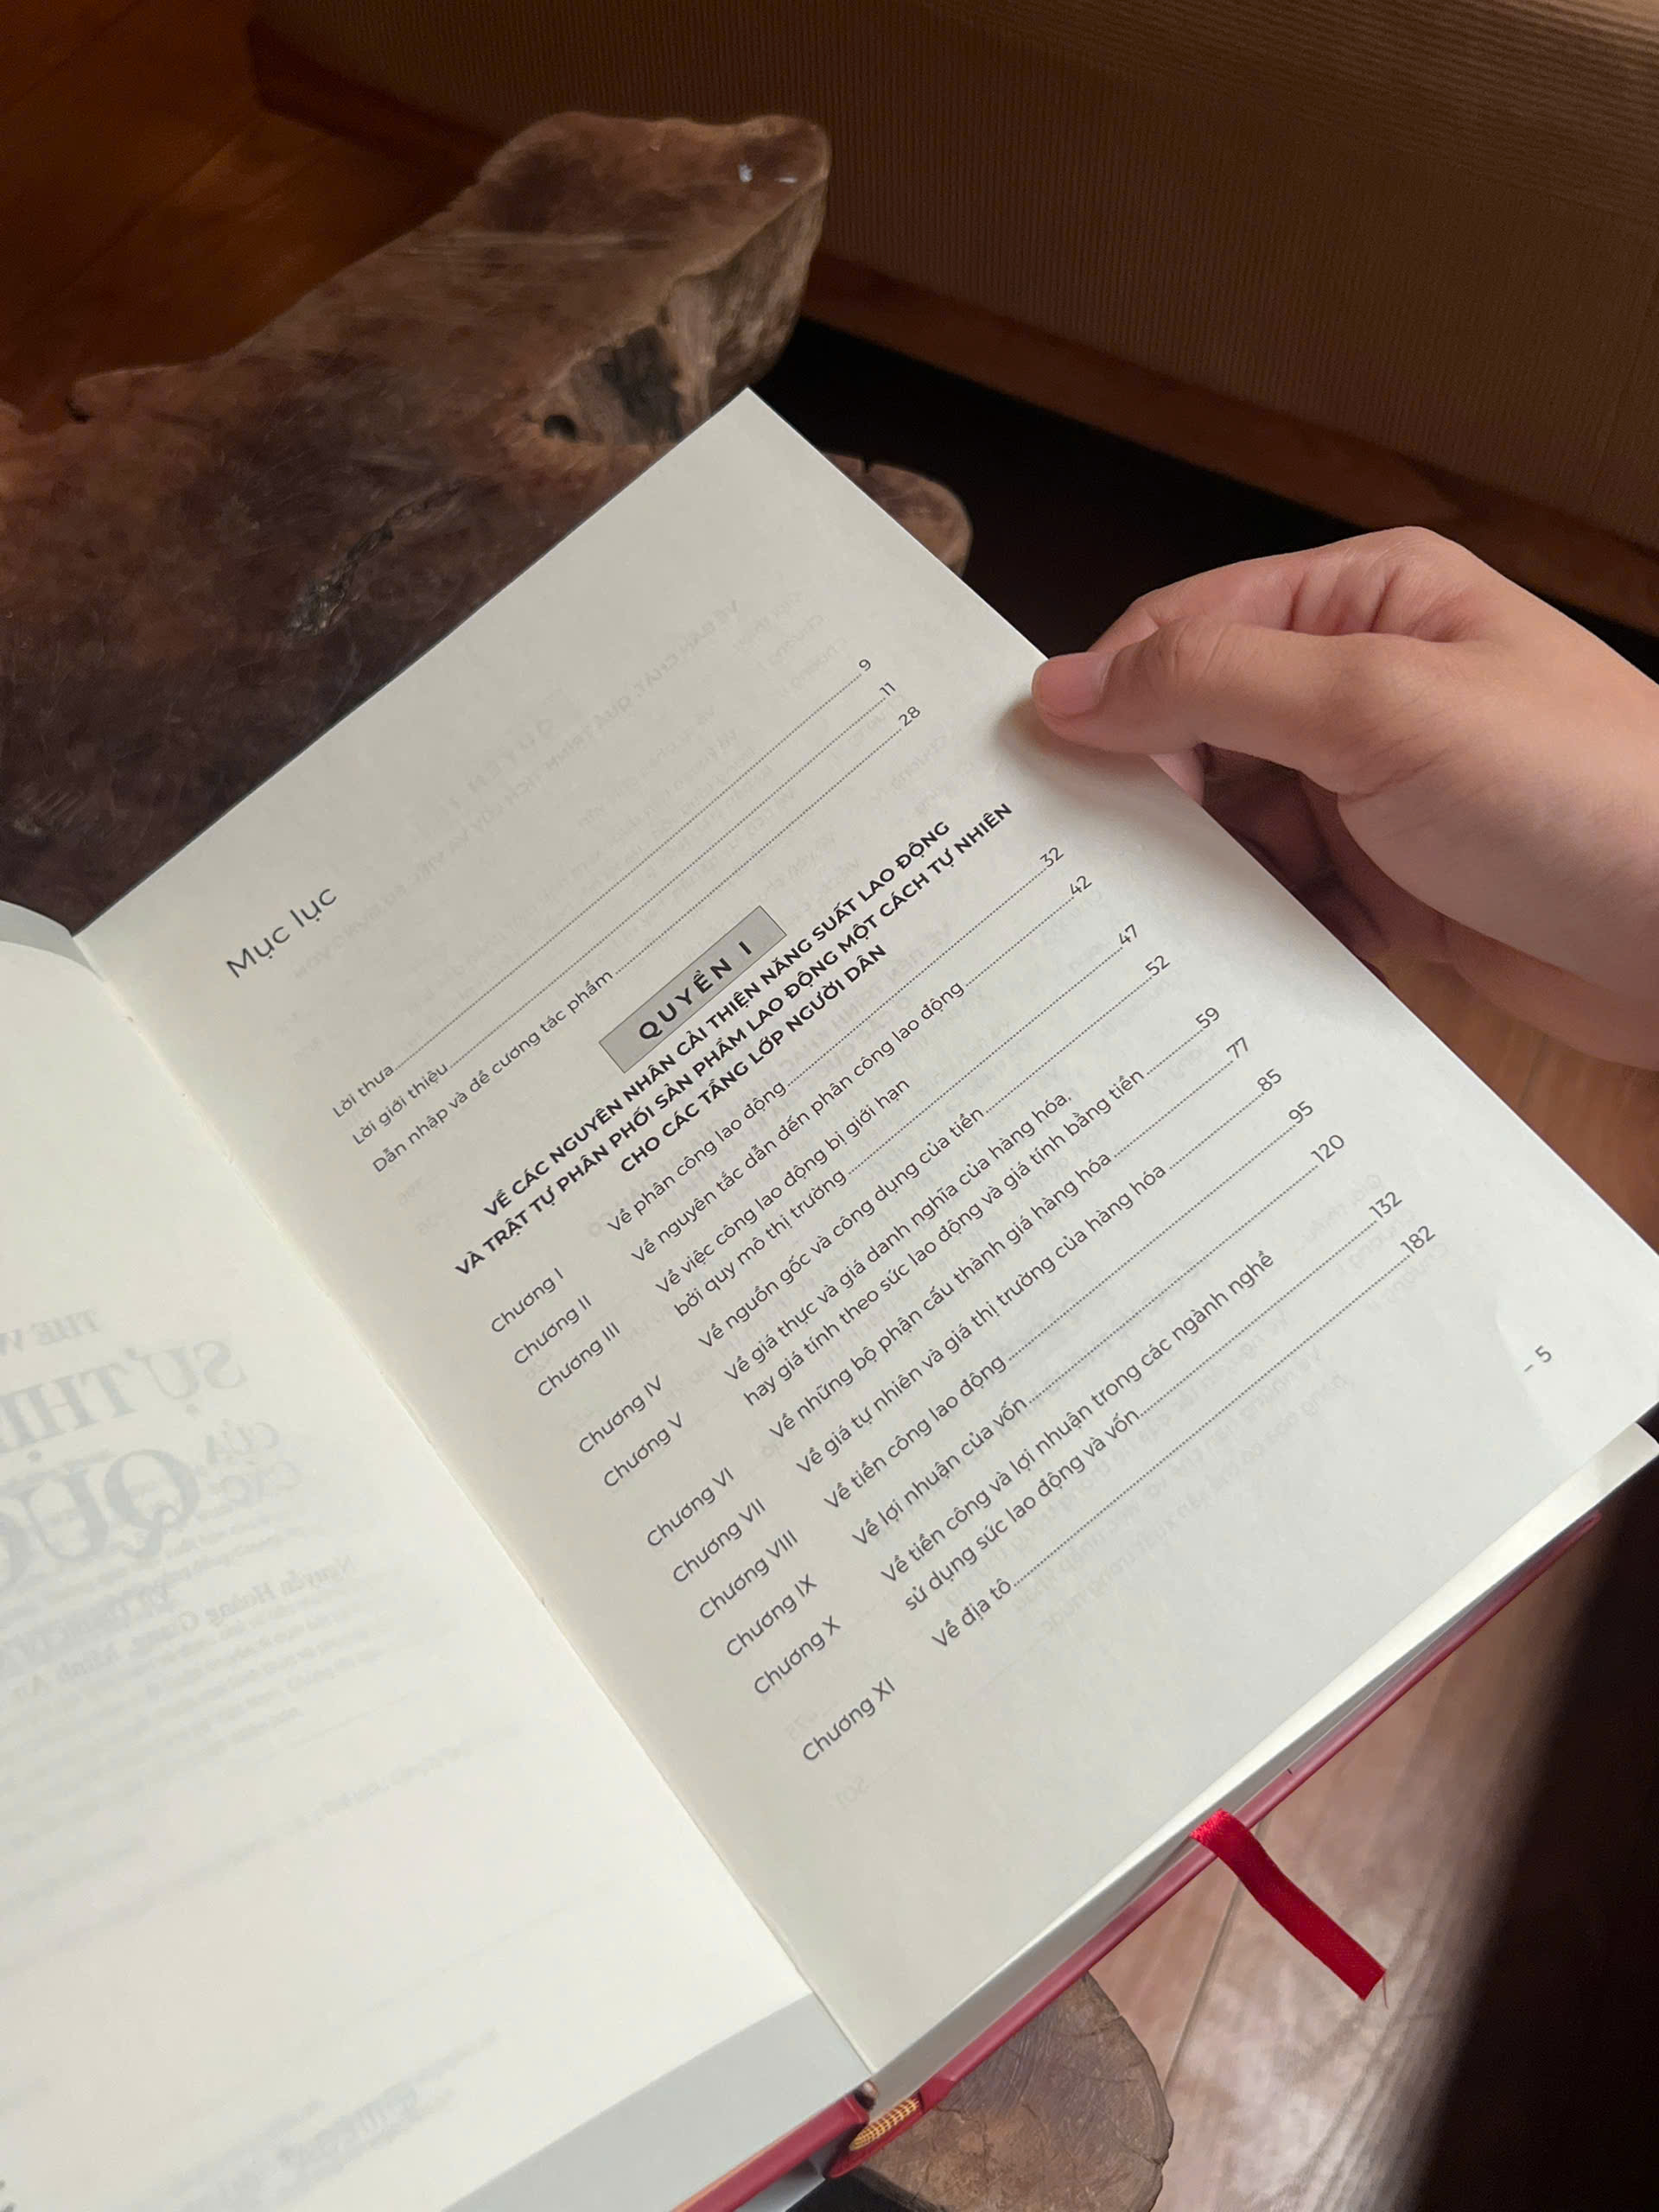 Mục lục
Lời thưa 9
Lời giới thiệu 11
Dẫn nhập và đề cương tác phẩm 28
QUYỂN I
VỀ CÁC NGUYÊN NHÂN CẢI THIỆN NĂNG SUẤT LAO ĐỘNG
VÀ TRẬT TỰ PHÂN PHỐI SẢN PHẨM LAO ĐỘNG MỘT CÁCH TỰ NHIÊN
CHO CÁC TẦNG LỚP NGƯỜI DÂN
Chương I Về phân công lao động 32
Chương II Về nguyên tắc dẫn đến phân công lao động 42
Chương III Về việc công lao động bị giới hạn
bởi quy mô thị trường 47
Chương IV Về nguồn gốc và công dụng của tiền 52
Chương V Về giá thực và giá danh nghĩa của hàng hóa,
hay giá tính theo sức lao động và giá tính bằng tiền 59
Chương VI Về những bộ phận cấu thành giá hàng hóa 77
Chương VII Về giá tự nhiên và giá thị trường của hàng hóa 85
Chương VIII Về tiền công lao động 95
Chương IX Về lợi nhuận của vốn 120
Chương X Về tiền công và lợi nhuận trong các ngành nghề
sử dụng sức lao động và vốn 132
Chương XI Về địa tô 182
- 5